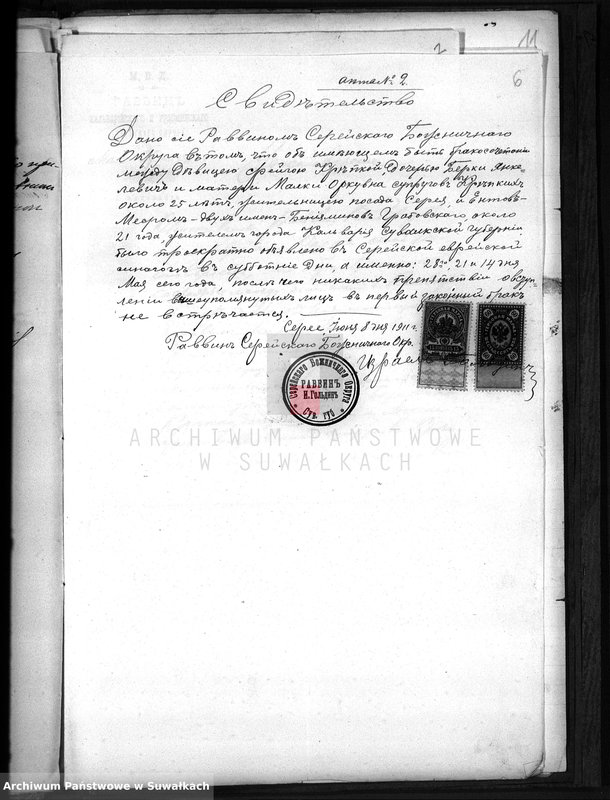 11
2
6
акта № 2
Свидѣтельство
Дано сіе Раввиномъ Серейскаго Божничнаго
Округа въ томъ, что объ имѣющемъ быть бракосочетаніи
между Дѣвицею Фрейдою дочерью Берки Янке-
левича и матери Малки супруговъ
около 25 лѣтъ, жительницею посада Серея, и
двухъ именъ Беніяминовъ Грабовскаго, около
21 года, жителемъ города Кальварія Сувалкской губерніи
было троекратно объявлено въ Серейской еврейской
синагогѣ въ субботніе дни, а именно: 28го, 21 и 14 дня
Мая сего года, послѣ чего никакихъ препятствій о вступ-
леніи вышеупомянутыхъ лицъ въ первый законный бракъ
не встрѣчается.
Серее Іюня 8 дня 1911 г.
Раввинъ Серейскаго Божничнаго Окр.
Серейскаго Божничнаго Округа
РАВВИНЪ
И. Гольдинъ
ARCHIWUM PAŃSTWOWE
W SUWAŁKACH
Archiwum Państwowe w Suwałkach